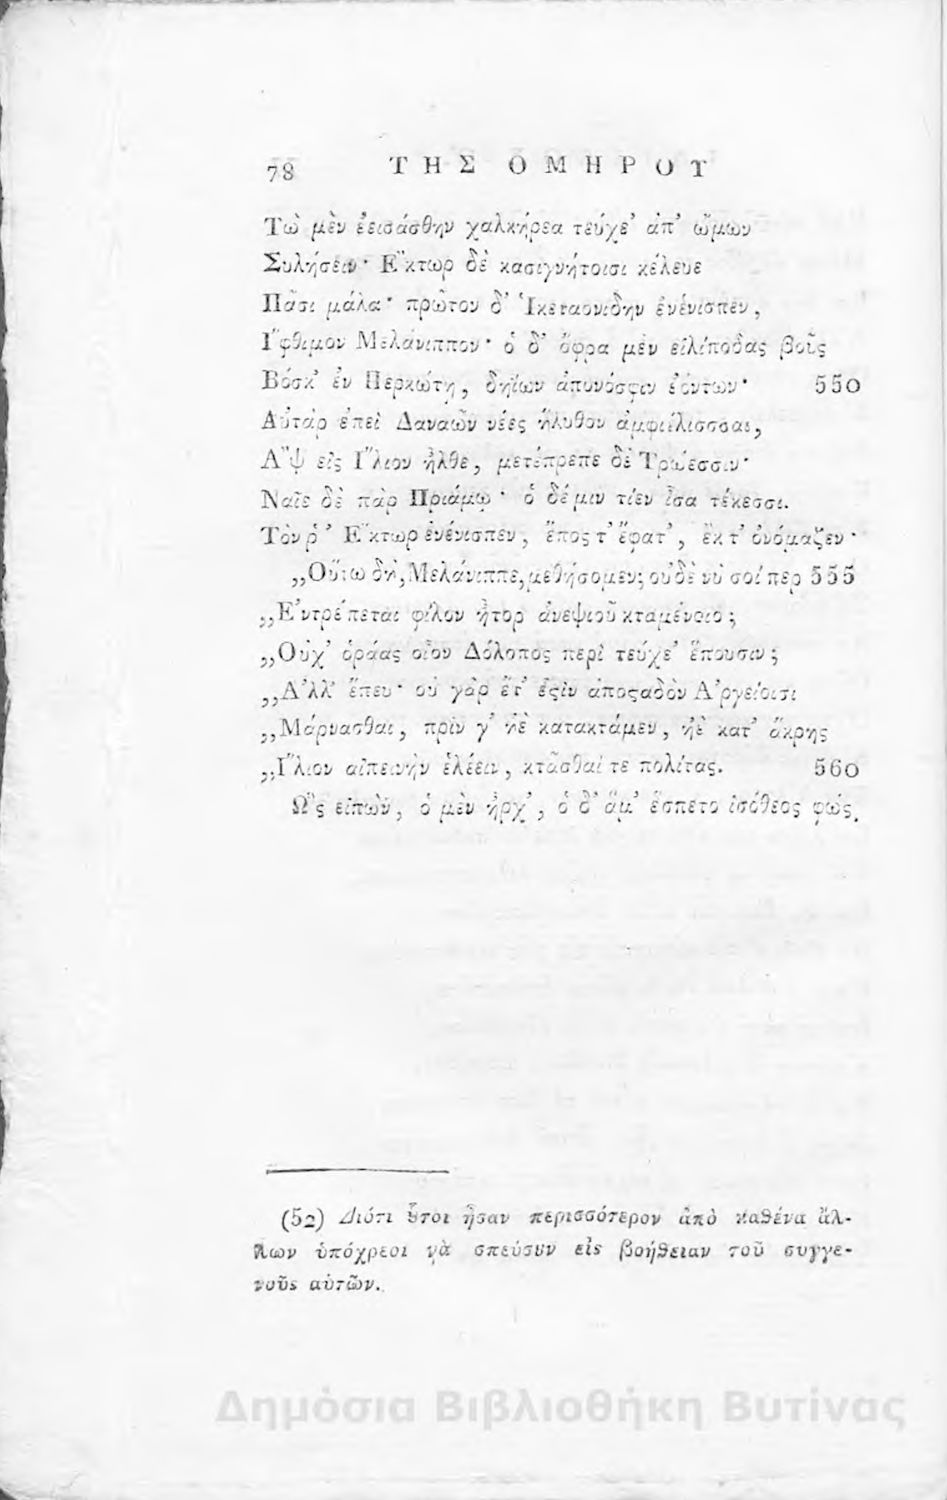 78 ΤΗΣ ΟΜΗΡΟΥ
Τὼ μὲν ἐεισάσθην χαλκήρεα τεύχε᾽ ἀπ᾽ ὤμων
Συλήσειν· Ἕκτωρ δὲ κασιγνήτοισι κέλευε
Πᾶσι μάλα· πρῶτον δ᾽ Ἱκεταονίδην ἐνένισπεν,
Ἴφθιμον Μελάνιππον· ὁ δ᾽ ὄφρα μὲν εἰλίποδας βοῦς
Βόσκ᾽ ἐν Περκώτῃ, δηΐων ἀπονόσφιν ἐόντων· 550
Αὐτὰρ ἐπεὶ Δαναῶν νέες ἤλυθον ἀμφιέλισσαι,
Ἂψ εἰς Ἴλιον ἦλθε, μετέπρεπε δὲ Τρώεσσιν·
Ναῖε δὲ πὰρ Πριάμῳ· ὁ δέ μιν τίεν ἶσα τέκεσσι.
Τόν ῥ᾽ Ἕκτωρ ἐνένισπεν, ἔπος τ᾽ ἔφατ᾽, ἔκ τ᾽ ὀνόμαζεν·
„Οὕτω δή, Μελάνιππε, μεθήσομεν; οὐδέ νύ σοί περ 555
„Ἐντρέπεται φίλον ἦτορ ἀνεψιοῦ κταμένοιο;
„Οὐχ᾽ ὁράας οἷον Δόλοπος περὶ τεύχε᾽ ἕπουσιν;
„Ἀλλ᾽ ἕπευ· οὐ γὰρ ἔτ᾽ ἐςὶν ἀποςαδὸν Ἀργείοισι
„Μάρνασθαι, πρίν γ᾽ ἠὲ κατακτάμεν, ἠὲ κατ᾽ ἄκρης
„Ἴλιον αἰπεινὴν ἑλέειν, κτᾶσθαί τε πολίτας. 560
Ὣς εἰπὼν, ὁ μὲν ἦρχ᾽, ὁ δ᾽ ἅμ᾽ ἕσπετο ἰσόθεος φώς.
(52) Διότι ȣ̃τοι ἦσαν περισσότερον ἀπὸ καθένα ἄλ-
λων ὑπόχρεοι νὰ σπεύσουν εἰς βοήθειαν τοῦ συγγε-
νοῦς αὐτῶν.
Δημόσια Βιβλιοθήκη Βυτίνας